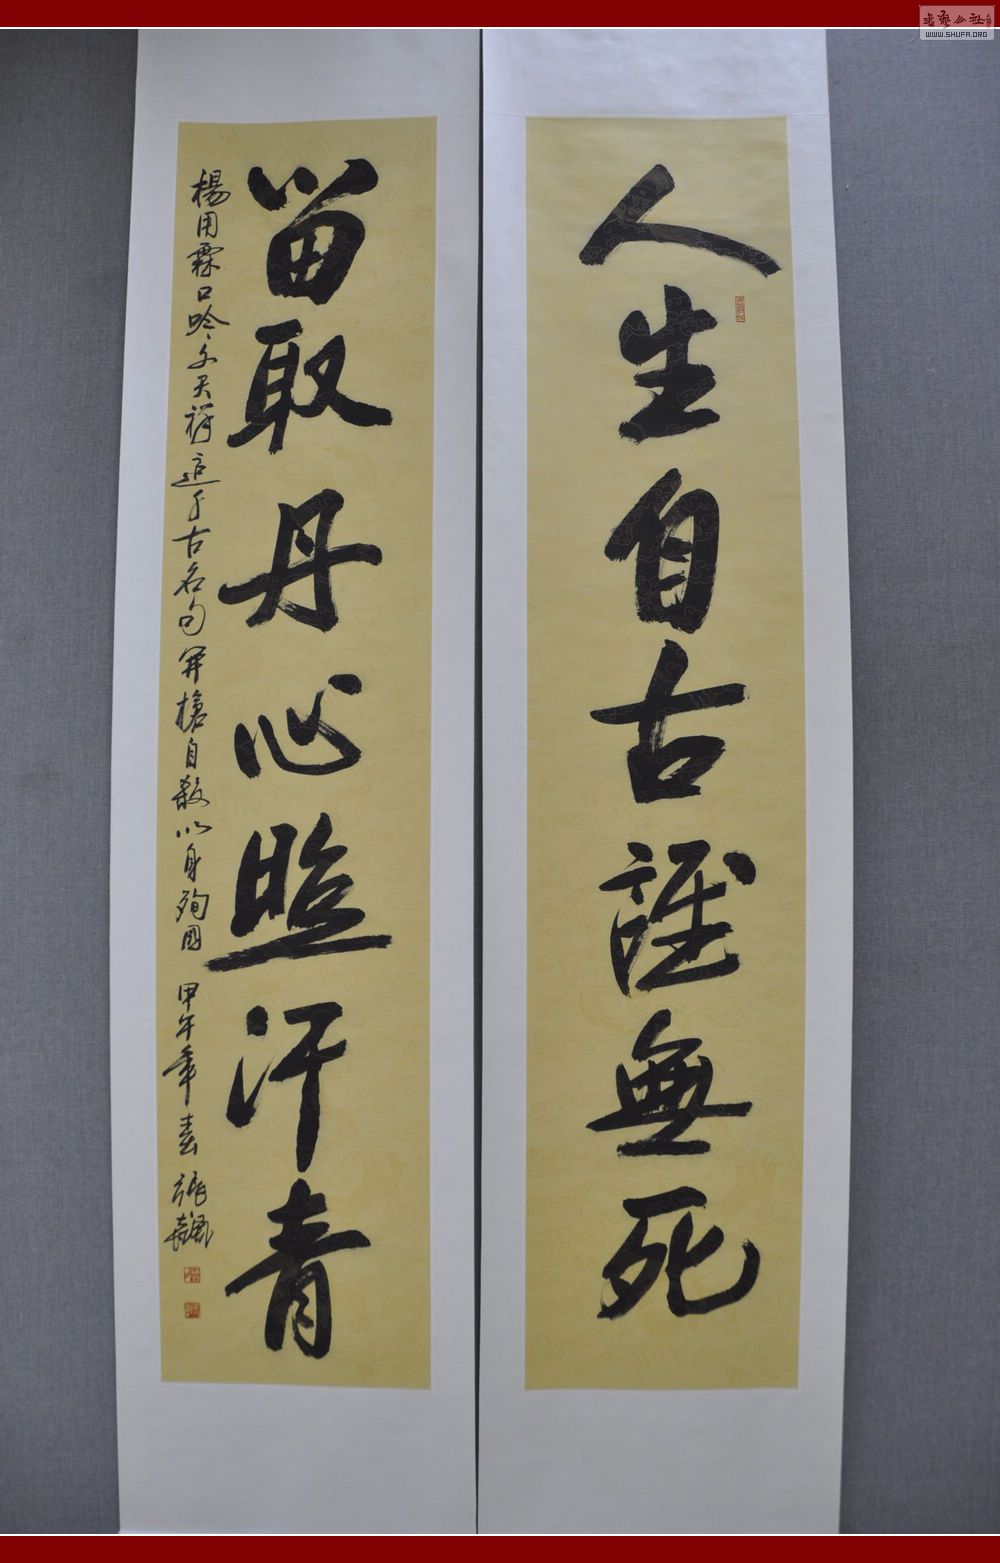 人生自古誰無死
留取丹心照汗青
楊用霖口吟文天祥這千古名句開槍自殺以身殉國 甲午年春 張
WWW.SHUFA.ORG